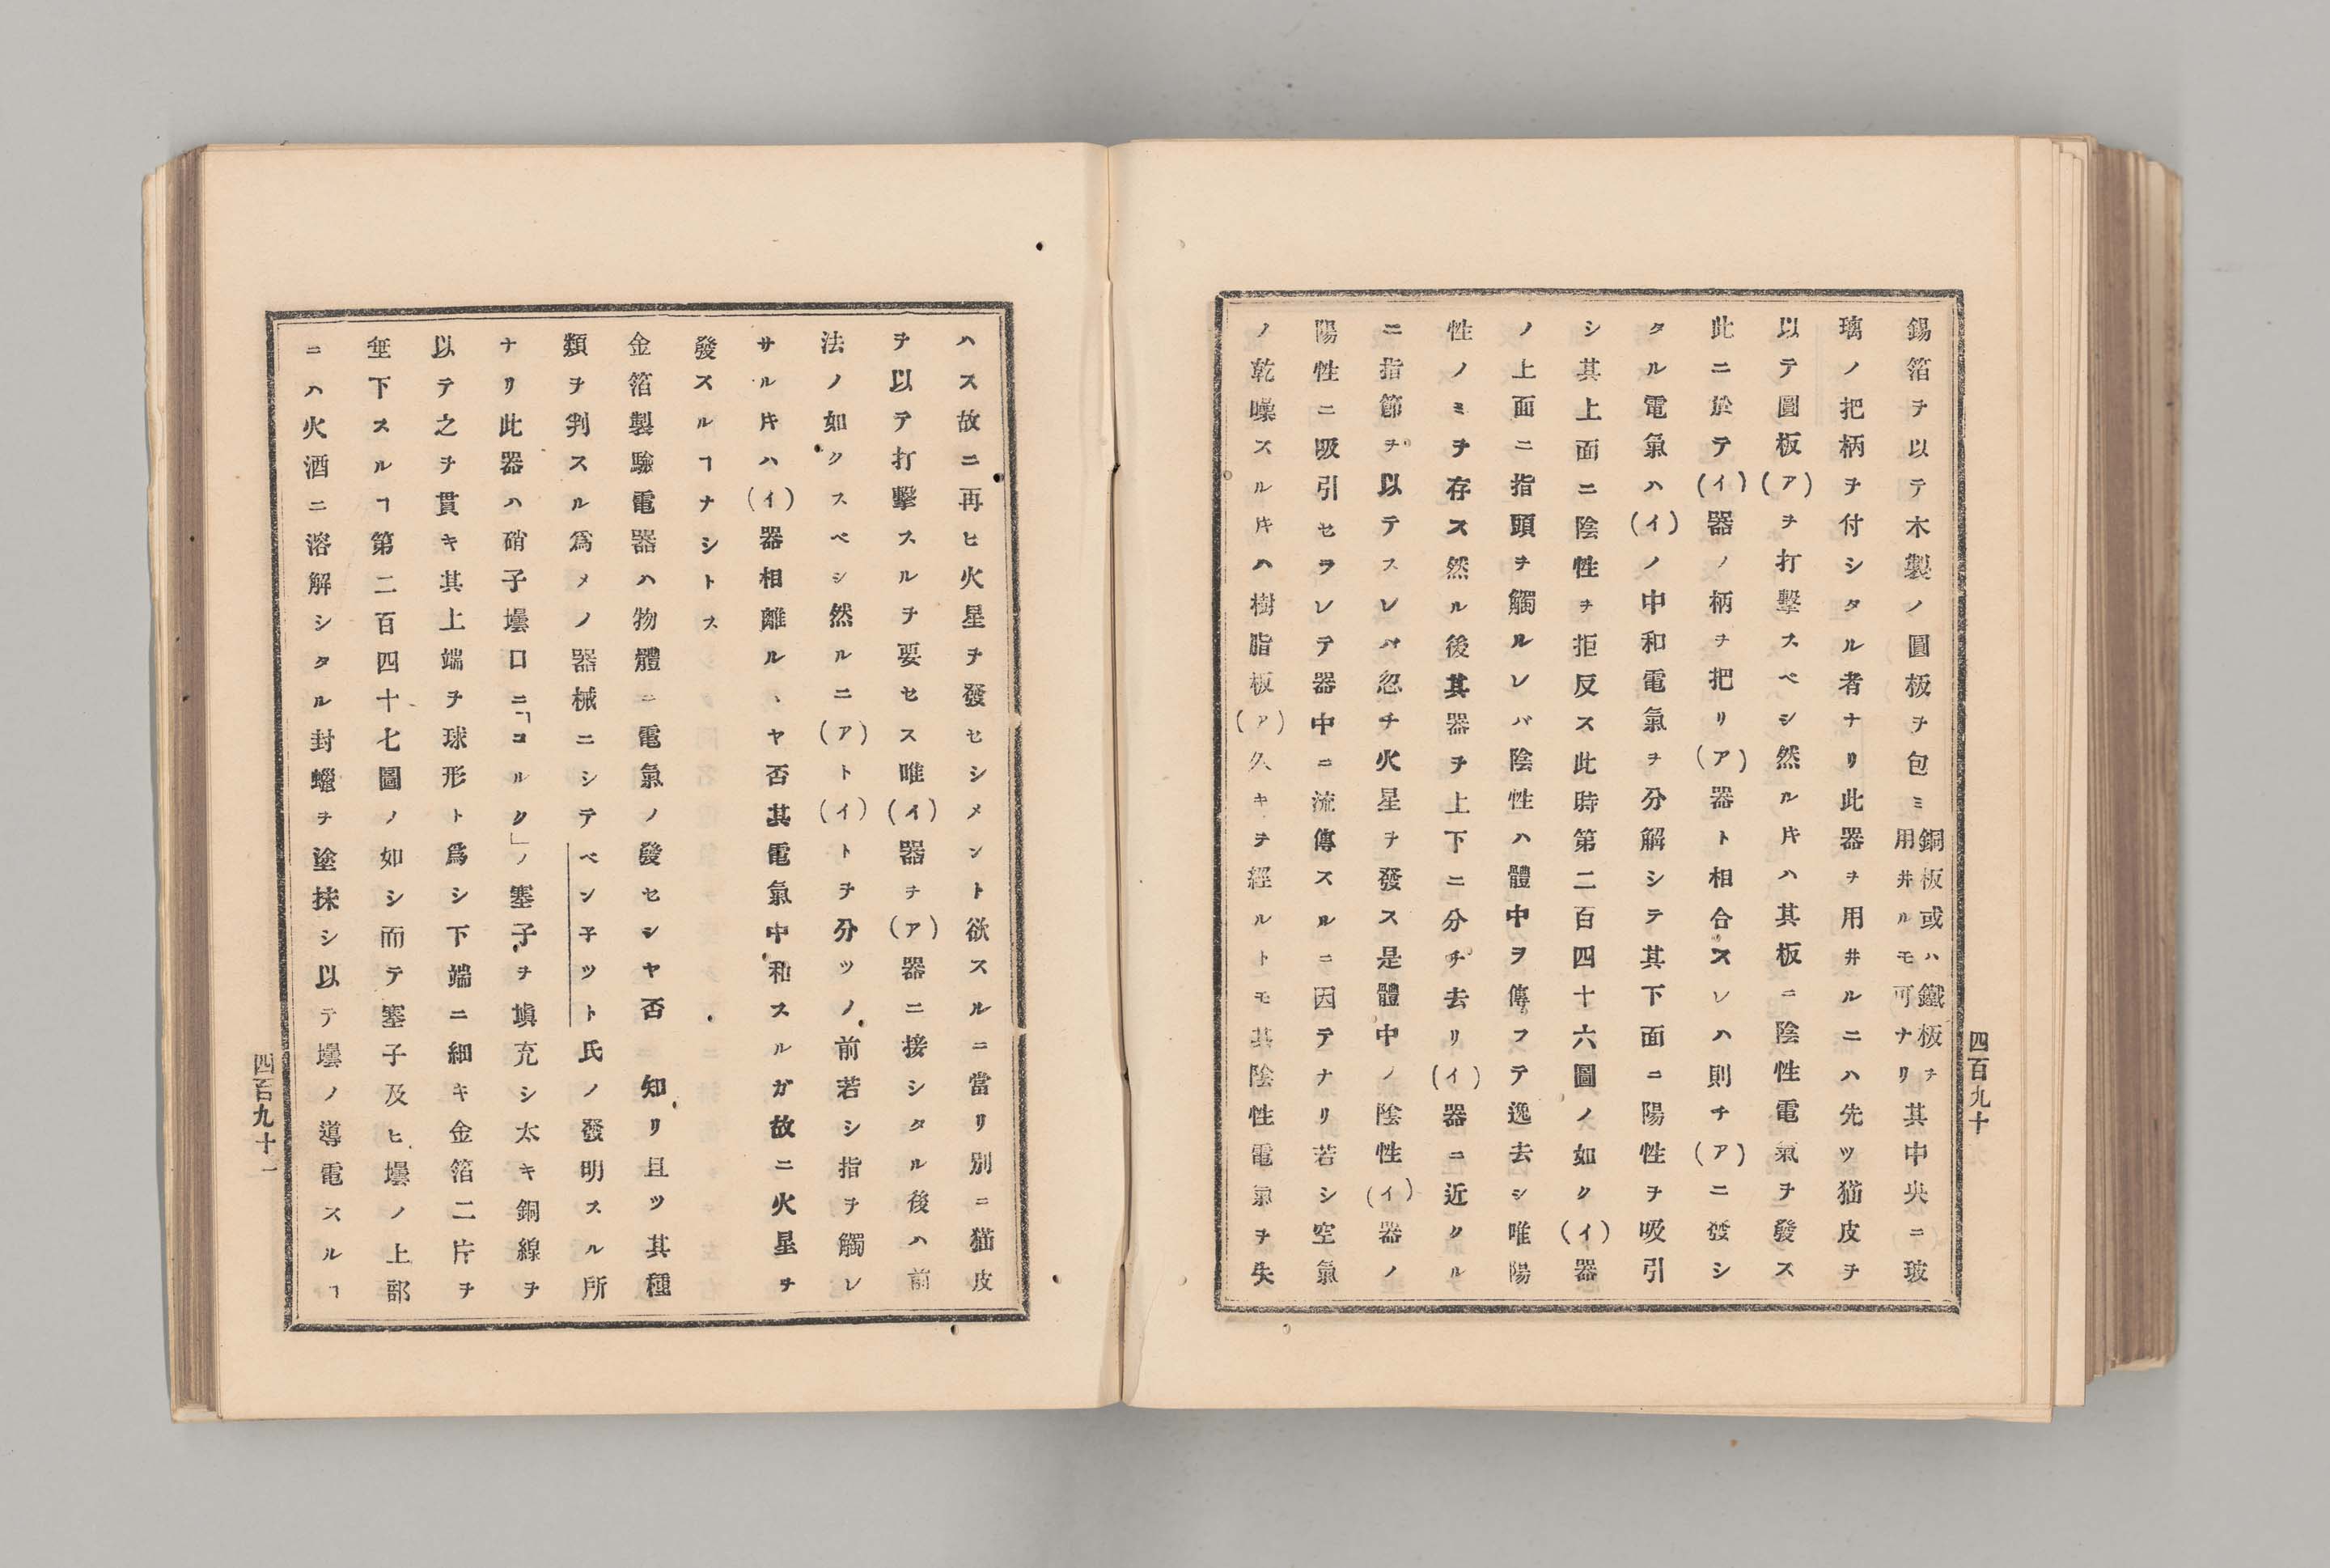 錫箔ヲ以テ木製ノ圓板ヲ包ミ銅板或ハ鐵板ヲ用井ルモ可ナリ其中央ニ玻
璃ノ把柄ヲ付シタル者ナリ此器ヲ用井ルニハ先ツ猫皮ヲ
以テ圓板(ア)ヲ打擊スベシ然ル𪜈ハ其板ニ陰性電氣ヲ發ス
此ニ於テ(イ)器ノ柄ヲ把リ(ア)器ト相合スレハ則チ(ア)ニ發シ
タル電氣ハ(イ)ノ中和電氣ヲ分解シテ其下面ニ陽性ヲ吸引
シ其上面ニ陰性ヲ拒反ス此時第二百四十六圖ノ如ク(イ)器
ノ上面ニ指頭ヲ觸ルレバ陰性ハ體中ヲ傳フテ逸去シ唯陽
性ノミヲ存ス然ル後其器ヲ上下ニ分チ去リ(イ)器ニ近クル
ニ指節ヲ以テスレバ忽チ火星ヲ發ス是體中ノ陰性(イ)器ノ
陽性ニ吸引セラレテ器中ニ流傳スルニ因テナリ若シ空氣
ノ乾燥スル𪜈ハ樹脂板(ア)久キヲ經ルトモ其陰性電氣ヲ失
四百九十
ハス故ニ再ヒ火星ヲ發セシメント欲スルニ當リ別ニ猫皮
ヲ以テ打擊スルヲ要セス唯(イ)器ヲ(ア)器ニ接シタル後ハ前
法ノ如クスベシ然ルニ(ア)ト(イ)トヲ分ツノ前若シ指ヲ觸レ
サル𪜈ハ(イ)器相離ルヽヤ否其電氣中和スルガ故ニ火星ヲ
發スルヿナシトス
金箔製驗電器ハ物體ニ電氣ノ發セシヤ否ニ知リ且ツ其種
類ヲ判スル爲メノ器械ニシテベン子ツト氏ノ發明スル所
ナリ此器ハ硝子壜口ニ「コルク」ノ塞子ヲ塡充シ太キ銅線ヲ
以テ之ヲ貫キ其上端ヲ球形ト爲シ下端ニ細キ金箔二片ヲ
垂下スルヿ第二百四十七圖ノ如シ而テ塞子及ヒ壜ノ上部
ニハ火酒ニ溶解シタル封蠟ヲ塗抹シ以テ壜ノ導電スルヿ
四百九十一